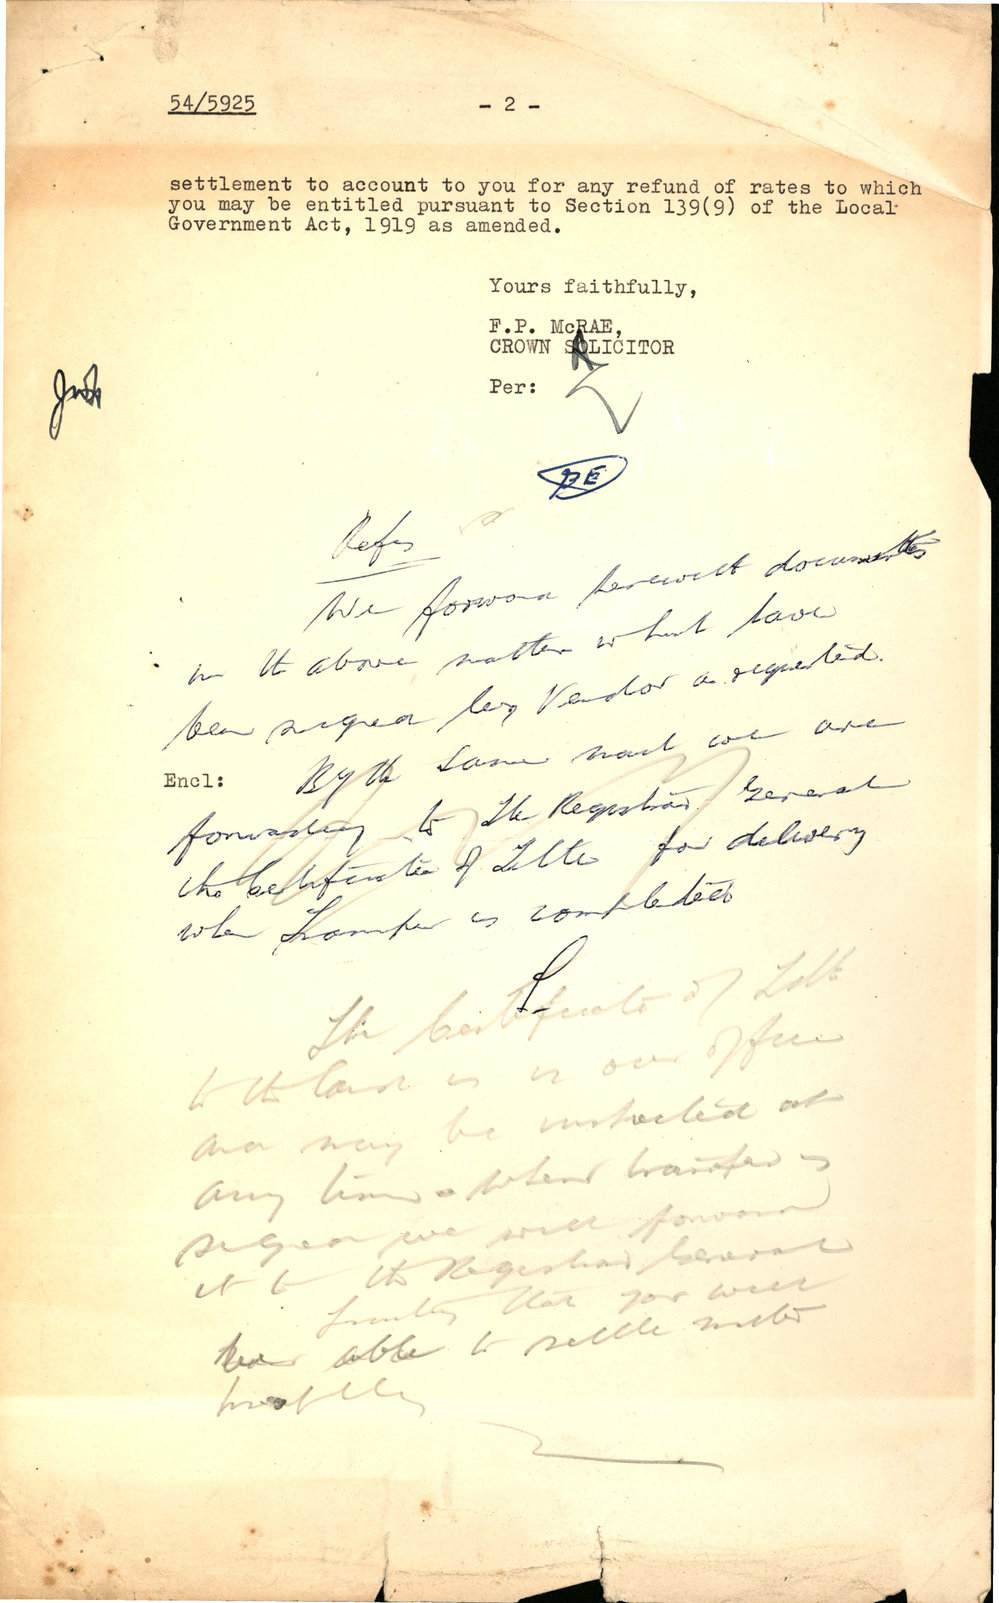 54/5925
- 2 -
settlement to account to you for any refund of rates to which
you may be entitled pursuant to Section 139(9) of the Local
Government Act, 1919 as amended.
Yours faithfully,
F.P. McRAE,
CROWN SOLICITOR
Per:
We forward herewith documents
in the above matter which have
been signed by Vendor as requested.
Encl:
By the same mail we are
forwarding to the Registrar General
the Certificate of Title for delivery
when Transfer is completed
The Certificate of Title
to the land is in our office
and may be inspected at
any time when transfer is
signed we will forward
it to the Registrar General
Trusting that you will
be able to settle matter